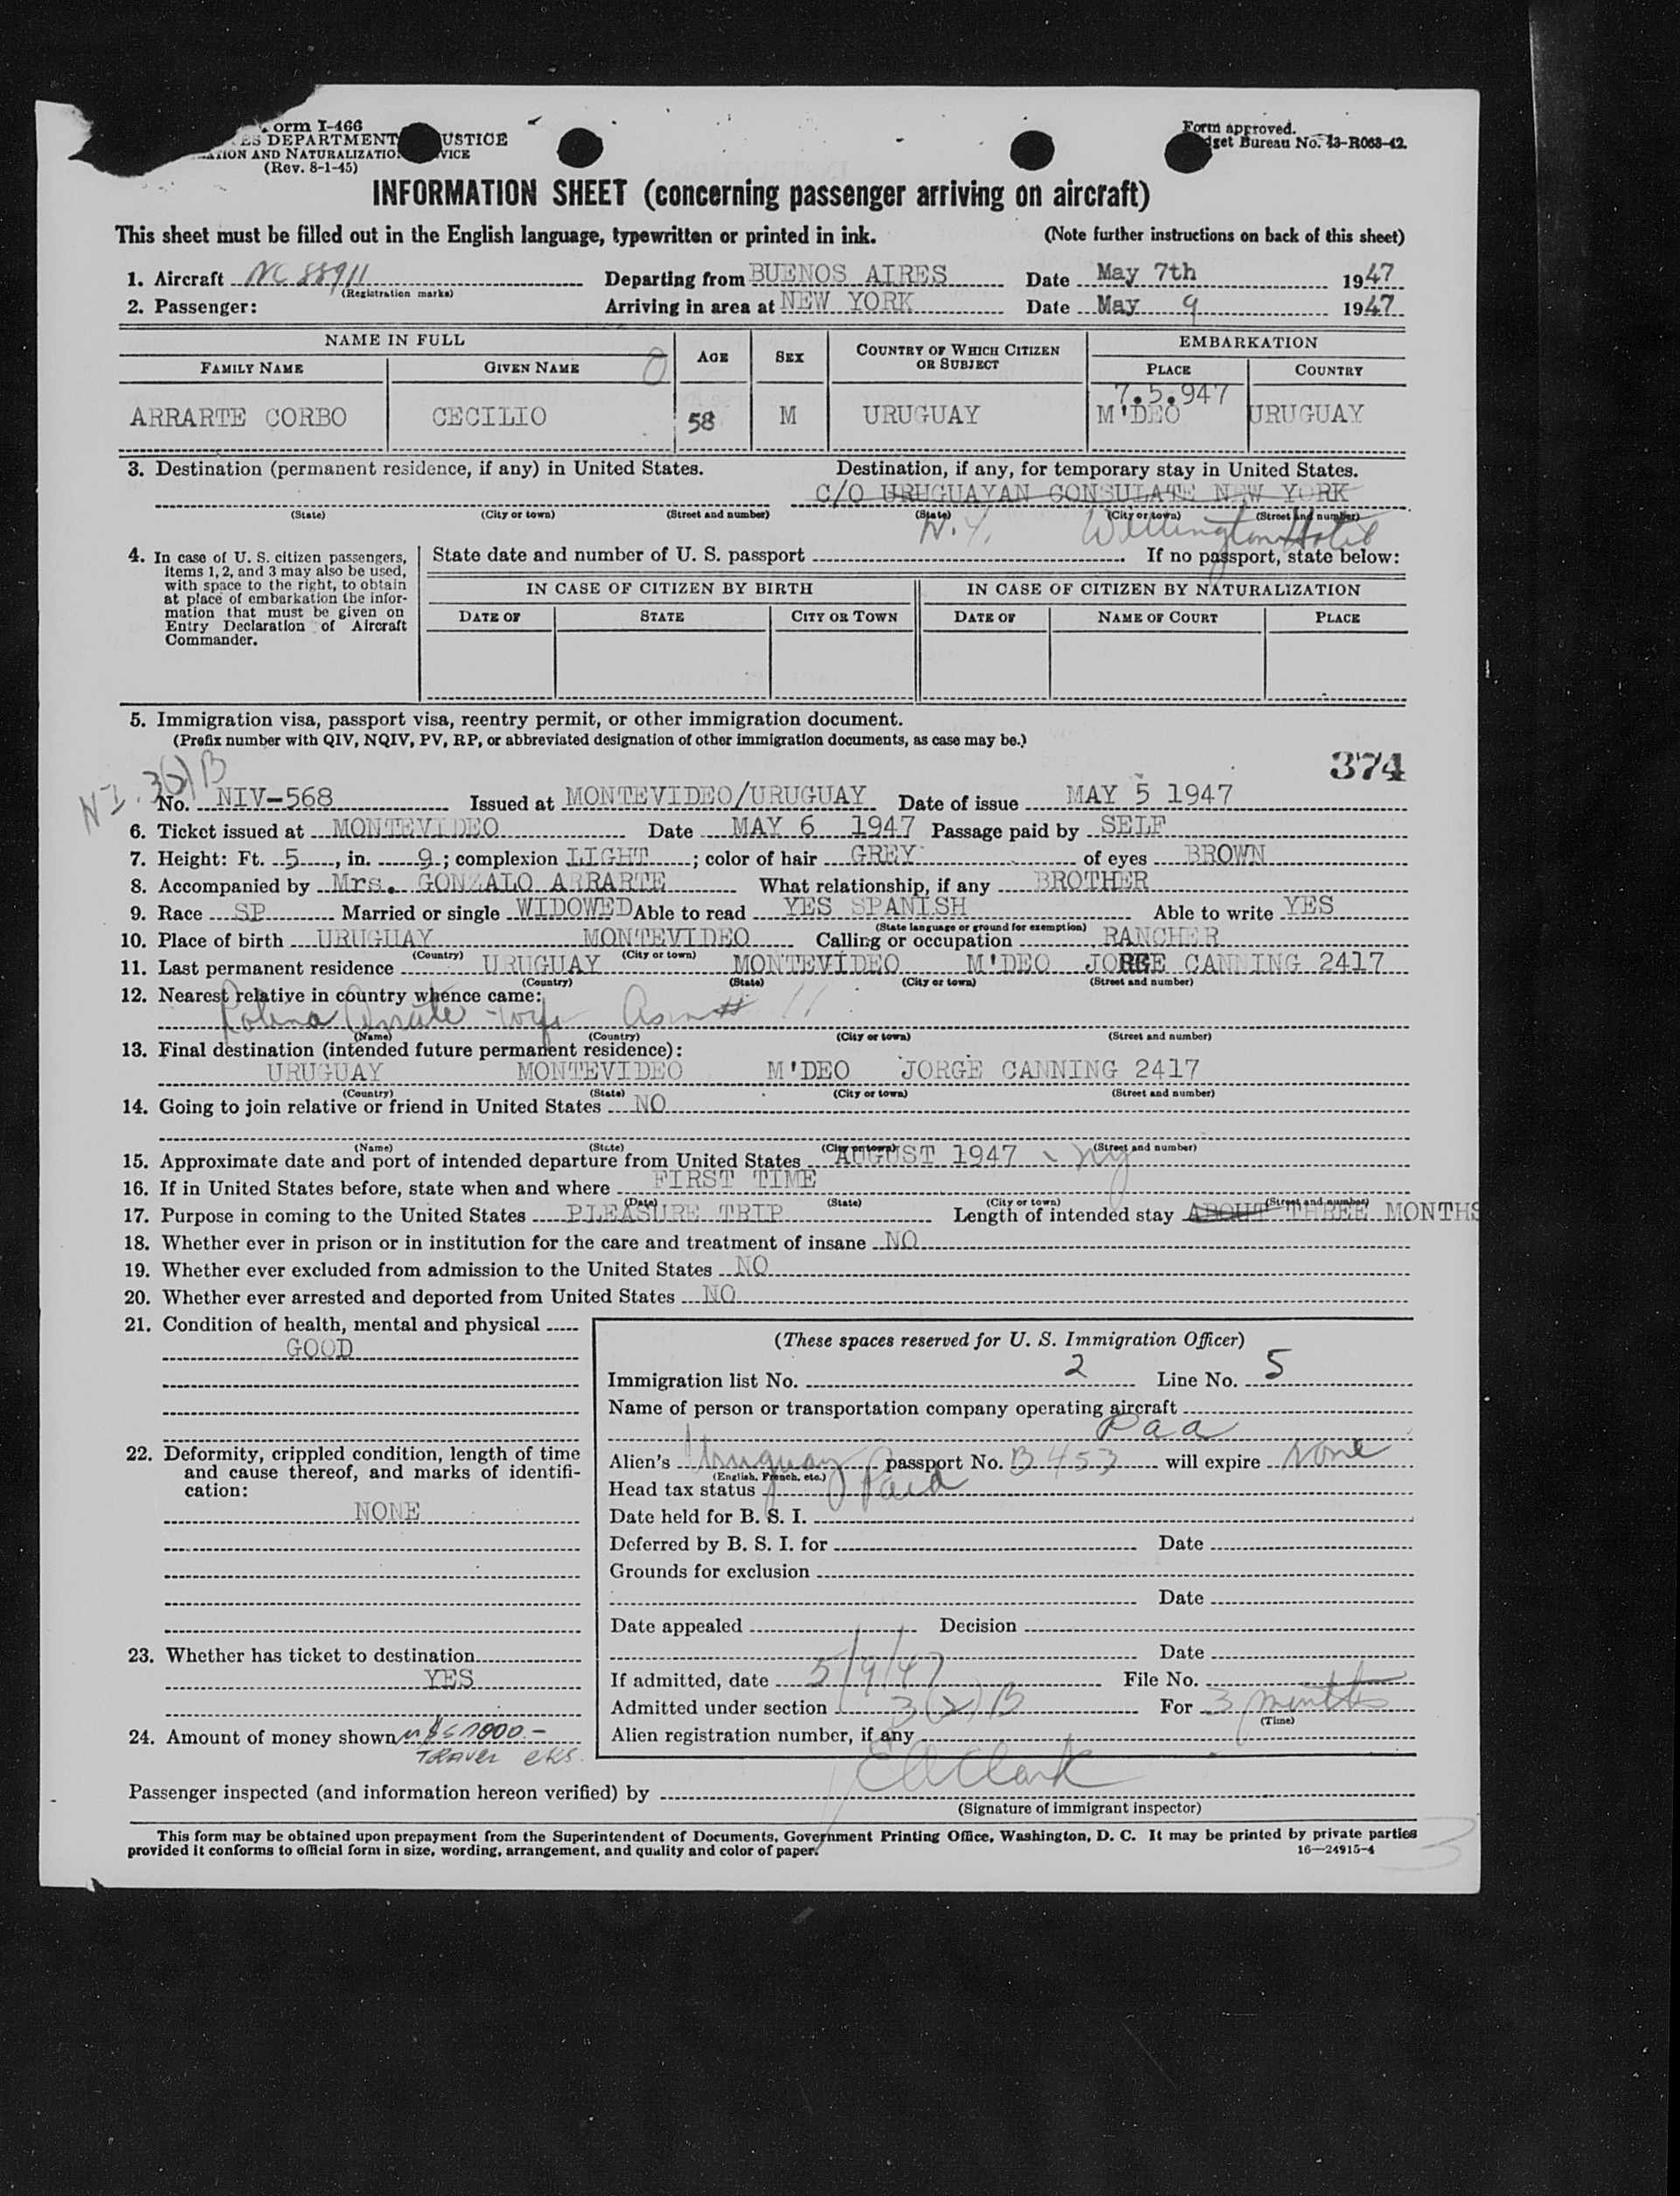 orm I-466
ES DEPARTMENT USTICE
TION AND NATURALIZATIO VICE
(Rev. 8-1-45)
Form approved.
dget Bureau No. 43-R063-42.
INFORMATION SHEET (concerning passenger arriving on aircraft)
This sheet must be filled out in the English language, typewritten or printed in ink. (Note further instructions on back of this sheet)
1. Aircraft NC 88911 Departing from BUENOS AIRES Date May 7th 1947
(Registration marks)
2. Passenger: Arriving in area at NEW YORK Date May 9 1947
NAME IN FULL AGE SEX COUNTRY OF WHICH CITIZEN OR SUBJECT EMBARKATION
FAMILY NAME GIVEN NAME PLACE COUNTRY
7.5.947
ARRARTE CORBO CECILIO 58 M URUGUAY M'DEO URUGUAY
3. Destination (permanent residence, if any) in United States. Destination, if any, for temporary stay in United States.
C/O URUGUAYAN CONSULATE NEW YORK
(State) (City or town) (Street and number) (State) (City or town) (Street and number)
N.Y. Wellington Hotel
4. In case of U. S. citizen passengers, items 1, 2, and 3 may also be used, with space to the right, to obtain at place of embarkation the information that must be given on Entry Declaration of Aircraft Commander.
State date and number of U. S. passport If no passport, state below:
IN CASE OF CITIZEN BY BIRTH IN CASE OF CITIZEN BY NATURALIZATION
DATE OF STATE CITY OR TOWN DATE OF NAME OF COURT PLACE
5. Immigration visa, passport visa, reentry permit, or other immigration document.
(Prefix number with QIV, NQIV, PV, RP, or abbreviated designation of other immigration documents, as case may be.)
374
NI. 3(2)B
No. NIV-568 Issued at MONTEVIDEO/URUGUAY Date of issue MAY 5 1947
6. Ticket issued at MONTEVIDEO Date MAY 6 1947 Passage paid by SELF
7. Height: Ft. 5, in. 9; complexion LIGHT; color of hair GREY of eyes BROWN
8. Accompanied by Mrs. GONZALO ARRARTE What relationship, if any BROTHER
9. Race SP Married or single WIDOWED Able to read YES SPANISH Able to write YES
(State language or ground for exemption)
10. Place of birth URUGUAY MONTEVIDEO Calling or occupation RANCHER
(Country) (City or town)
11. Last permanent residence URUGUAY MONTEVIDEO M'DEO JORGE CANNING 2417
(Country) (State) (City or town) (Street and number)
12. Nearest relative in country whence came:
As in # 11
(Name) (Country) (City or town) (Street and number)
13. Final destination (intended future permanent residence):
URUGUAY MONTEVIDEO M'DEO JORGE CANNING 2417
(Country) (State) (City or town) (Street and number)
14. Going to join relative or friend in United States NO
(Name) (State) (City or town) (Street and number)
15. Approximate date and port of intended departure from United States AUGUST 1947 - NY
16. If in United States before, state when and where FIRST TIME
(Date) (State) (City or town) (Street and number)
17. Purpose in coming to the United States PLEASURE TRIP Length of intended stay ABOUT THREE MONTHS
18. Whether ever in prison or in institution for the care and treatment of insane NO
19. Whether ever excluded from admission to the United States NO
20. Whether ever arrested and deported from United States NO
21. Condition of health, mental and physical
GOOD
22. Deformity, crippled condition, length of time and cause thereof, and marks of identification:
NONE
23. Whether has ticket to destination
YES
24. Amount of money shown 1000.-
TRAVEL CKS.
(These spaces reserved for U. S. Immigration Officer)
Immigration list No. 2 Line No. 5
Name of person or transportation company operating aircraft
Paa
Alien's Uruguay passport No. B 453 will expire None
(English, French, etc.)
Head tax status Paid
Date held for B. S. I.
Deferred by B. S. I. for Date
Grounds for exclusion
Date
Date appealed Decision
Date
If admitted, date 5/9/47 File No.
Admitted under section 3(2)B For 3 months
(Time)
Alien registration number, if any
Passenger inspected (and information hereon verified) by E A Clark
(Signature of immigrant inspector)
This form may be obtained upon prepayment from the Superintendent of Documents, Government Printing Office, Washington, D. C. It may be printed by private parties
provided it conforms to official form in size, wording, arrangement, and quality and color of paper. 16—24915-4
3